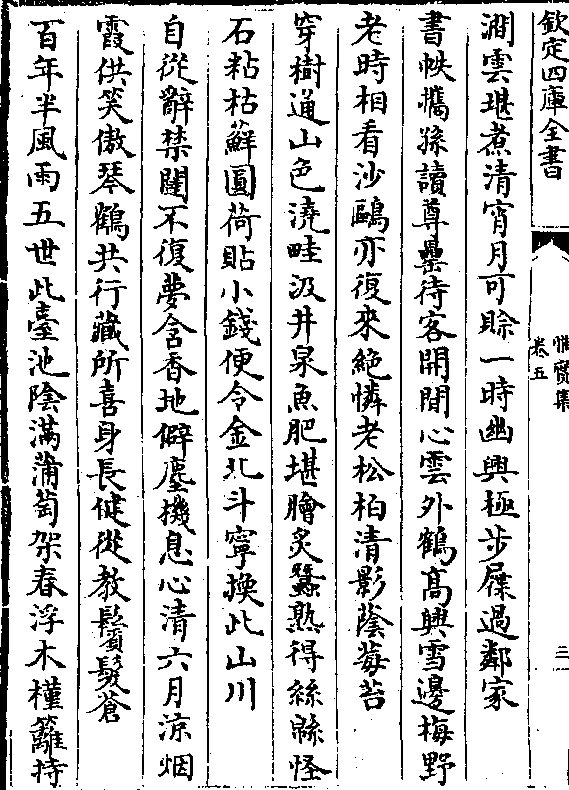 欽定四庫全書
惟實集
卷五
三
澗雲堪煮清宵月可賒一時幽興極步屧過鄰家
書帙攜孫讀尊罍待客開閒心雲外鶴高興雪邊梅野
老時相看沙鷗亦復來絶憐老松柏清影蔭莓苔
穿樹通山色澆畦汲井泉魚肥堪膾炙蠶熟得絲緜怪
石粘枯蘚圓荷貼小錢便令金北斗寧換此山川
自從辭禁闥不復夢含香地僻塵機息心清六月涼烟
霞供笑傲琴鶴共行藏所喜身長健從教鬢髮蒼
百年半風雨五世此臺池陰滿蒲萄架春浮木槿籬持